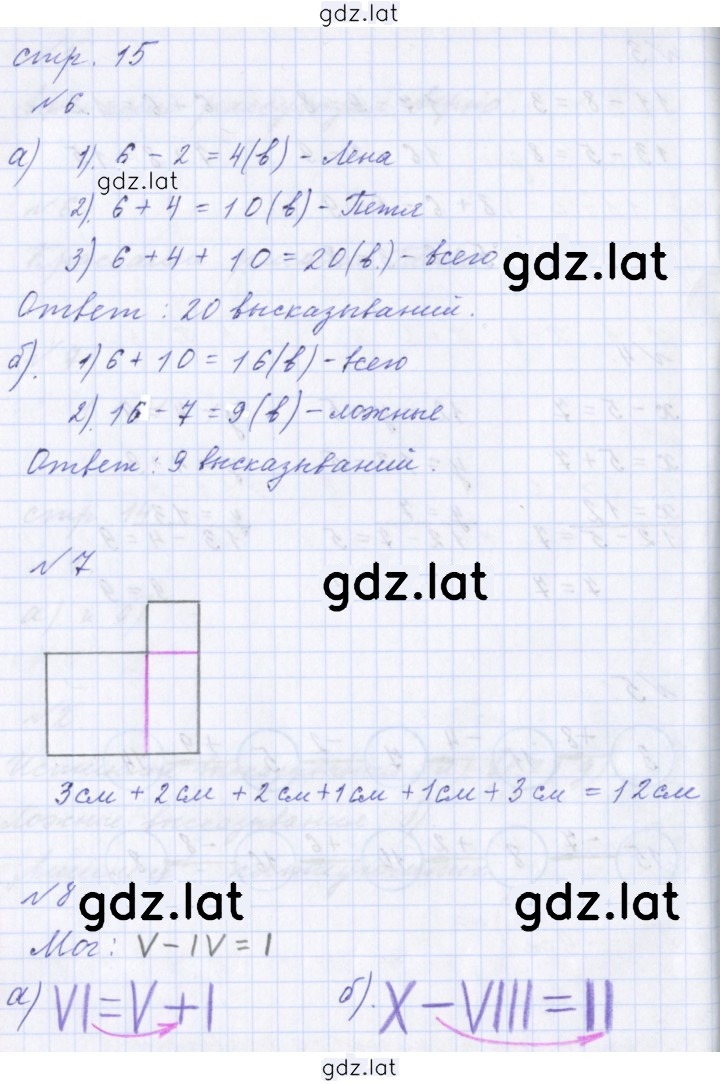 gdz.lat
стр. 15
№ 6.
а) 1). 6 - 2 = 4(в) - Лена
gdz.lat
2). 6 + 4 = 10(в) - Петя
3) 6 + 4 + 10 = 20(в.) - всего
gdz.lat
Ответ: 20 высказываний.
б). 1) 6 + 10 = 16(в) - всего
2). 16 - 7 = 9(в) - ложные
Ответ: 9 высказываний.
№ 7
gdz.lat
3см + 2см + 2см + 1см + 1см + 3см = 12см
№ 8
gdz.lat gdz.lat
Мог: V - IV = I
а) VI = V + I б). X - VIII = II
gdz.lat